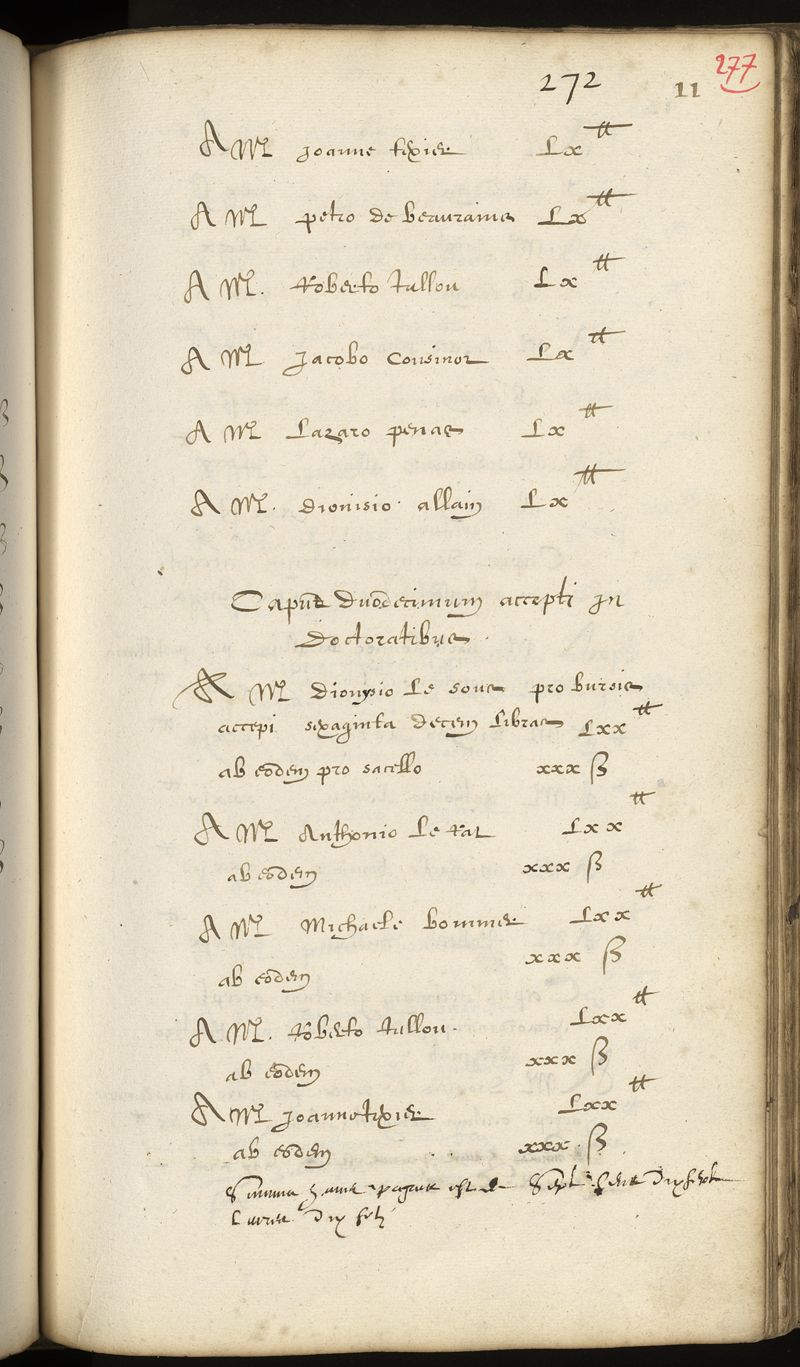 272 11 277
A Mro Joanne texier Lx tt
A Mro petro de beaurains Lx tt
A Mro. Roberto tullou Lx tt
A Mro Jacobo Cousinot Lx tt
A Mro Lazaro penas Lx tt
A Mro. dionisio allain Lx tt
Caput duodecimum accepti In
doctoratibus.
A Mro dionysio Le soue pro bursis
accepi sexaginta decem libras Lxx tt
ab eodem pro sacello xxx ß
A Mro Anthonio Le Rat Lxx tt
ab eodem xxx ß
A Mro Michaele bommer Lxx tt
ab eodem xxx ß
A Mro. Roberto tullou. Lxx tt
ab eodem xxx ß
A Mro Joanne texier Lxx tt
ab eodem xxx ß
Summa est Sept dix sept
Livres dix